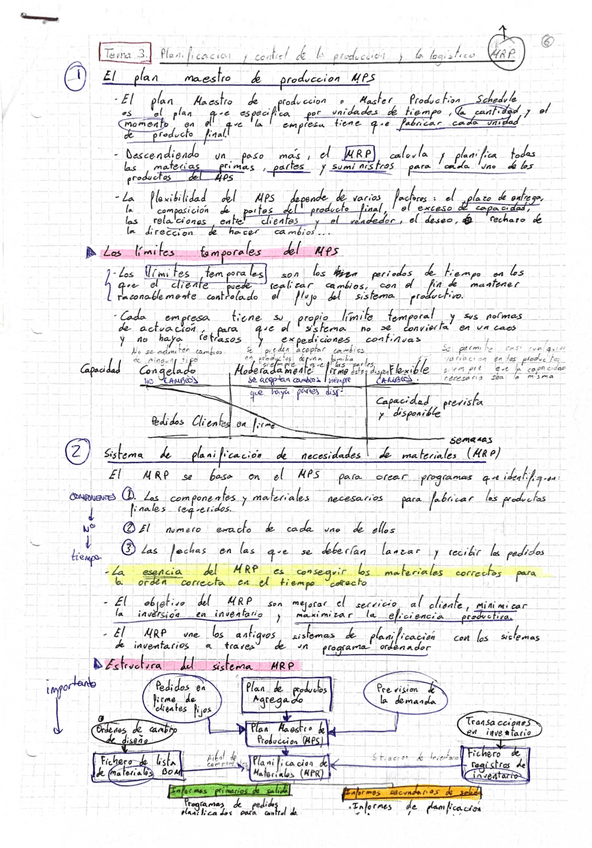 MRP
6
Tema 3. Planificacion y control de la produccion y la logistica
1 El plan maestro de produccion MPS
- El plan Maestro de produccion o Master Production Schedule
es el plan que especifica por unidades de tiempo, la cantidad y el
momento en el que la empresa tiene que fabricar cada unidad
de producto final.
- Descendiendo un paso más, el MRP calcula y planifica todas
las materias primas, partes y suministros para cada uno de los
productos del MPS
- La flexibilidad del MPS depende de varios factores: el plazo de entrega,
la composición de partes del producto final, el exceso de capacidad,
las relaciones entre clientes y el vendedor, el deseo, rechazo de
la direccion de hacer cambios...
Los límites temporales del MPS
- Los límites temporales son los periodos de tiempo en los
que el cliente puede realizar cambios, con el fin de mantener
razonablemente controlado el flujo del sistema productivo.
- Cada empresa tiene su propio límite temporal y sus normas
de actuación, para que el sistema no se convierta en un caos
y no haya retrasos y expediciones continuas
No se admiten cambios
de ningun tipo
Se pueden aceptar cambios
en productos de una familia
siempre que las partes
Se permite casi cualquier
variacion en los productos
siempre que la capacidad
necesaria sea la misma
Capacidad Congelado Moderadamente firme Flexible
NO CAMBIOS se aceptan cambios siempre CAMBIOS
que haya partes disp.
Capacidad prevista
y disponible
Pedidos Clientes en firme
semanas
2 Sistema de planificación de necesidades de materiales (MRP)
El MRP se basa en el MPS para crear programas que identifiquen:
COMPONENTES 1 Los componentes y materiales necesarios para fabricar los productos
finales requeridos.
Nº 2 El numero exacto de cada uno de ellos
tiempo 3 Las fechas en las que se deberían lanzar y recibir los pedidos
- La esencia del MRP es conseguir los materiales correctos para
la orden correcta en el tiempo correcto
- El objetivo del MRP son mejorar el servicio al cliente, minimizar
la inversión en inventario y maximizar la eficiencia productiva.
- El MRP une los antiguos sistemas de planificación con los sistemas
de inventarios a traves de un programa ordenador
Estructura del sistema MRP
importante
Pedidos en
firme de
clientes fijos
Plan de productos
Agregado
Prevision de
la demanda
Ordenes de cambio
de diseño
Plan Maestro de
Produccion (MPS)
Transacciones
en inventario
Fichero de lista
de materiales BOM
Planificacion de
Materiales (MPR)
Fichero de
registros de
inventario
Informes primarios de salida
Informes secundarios de salida
Programas de pedidos
planificados para control de
- Informes de planificación